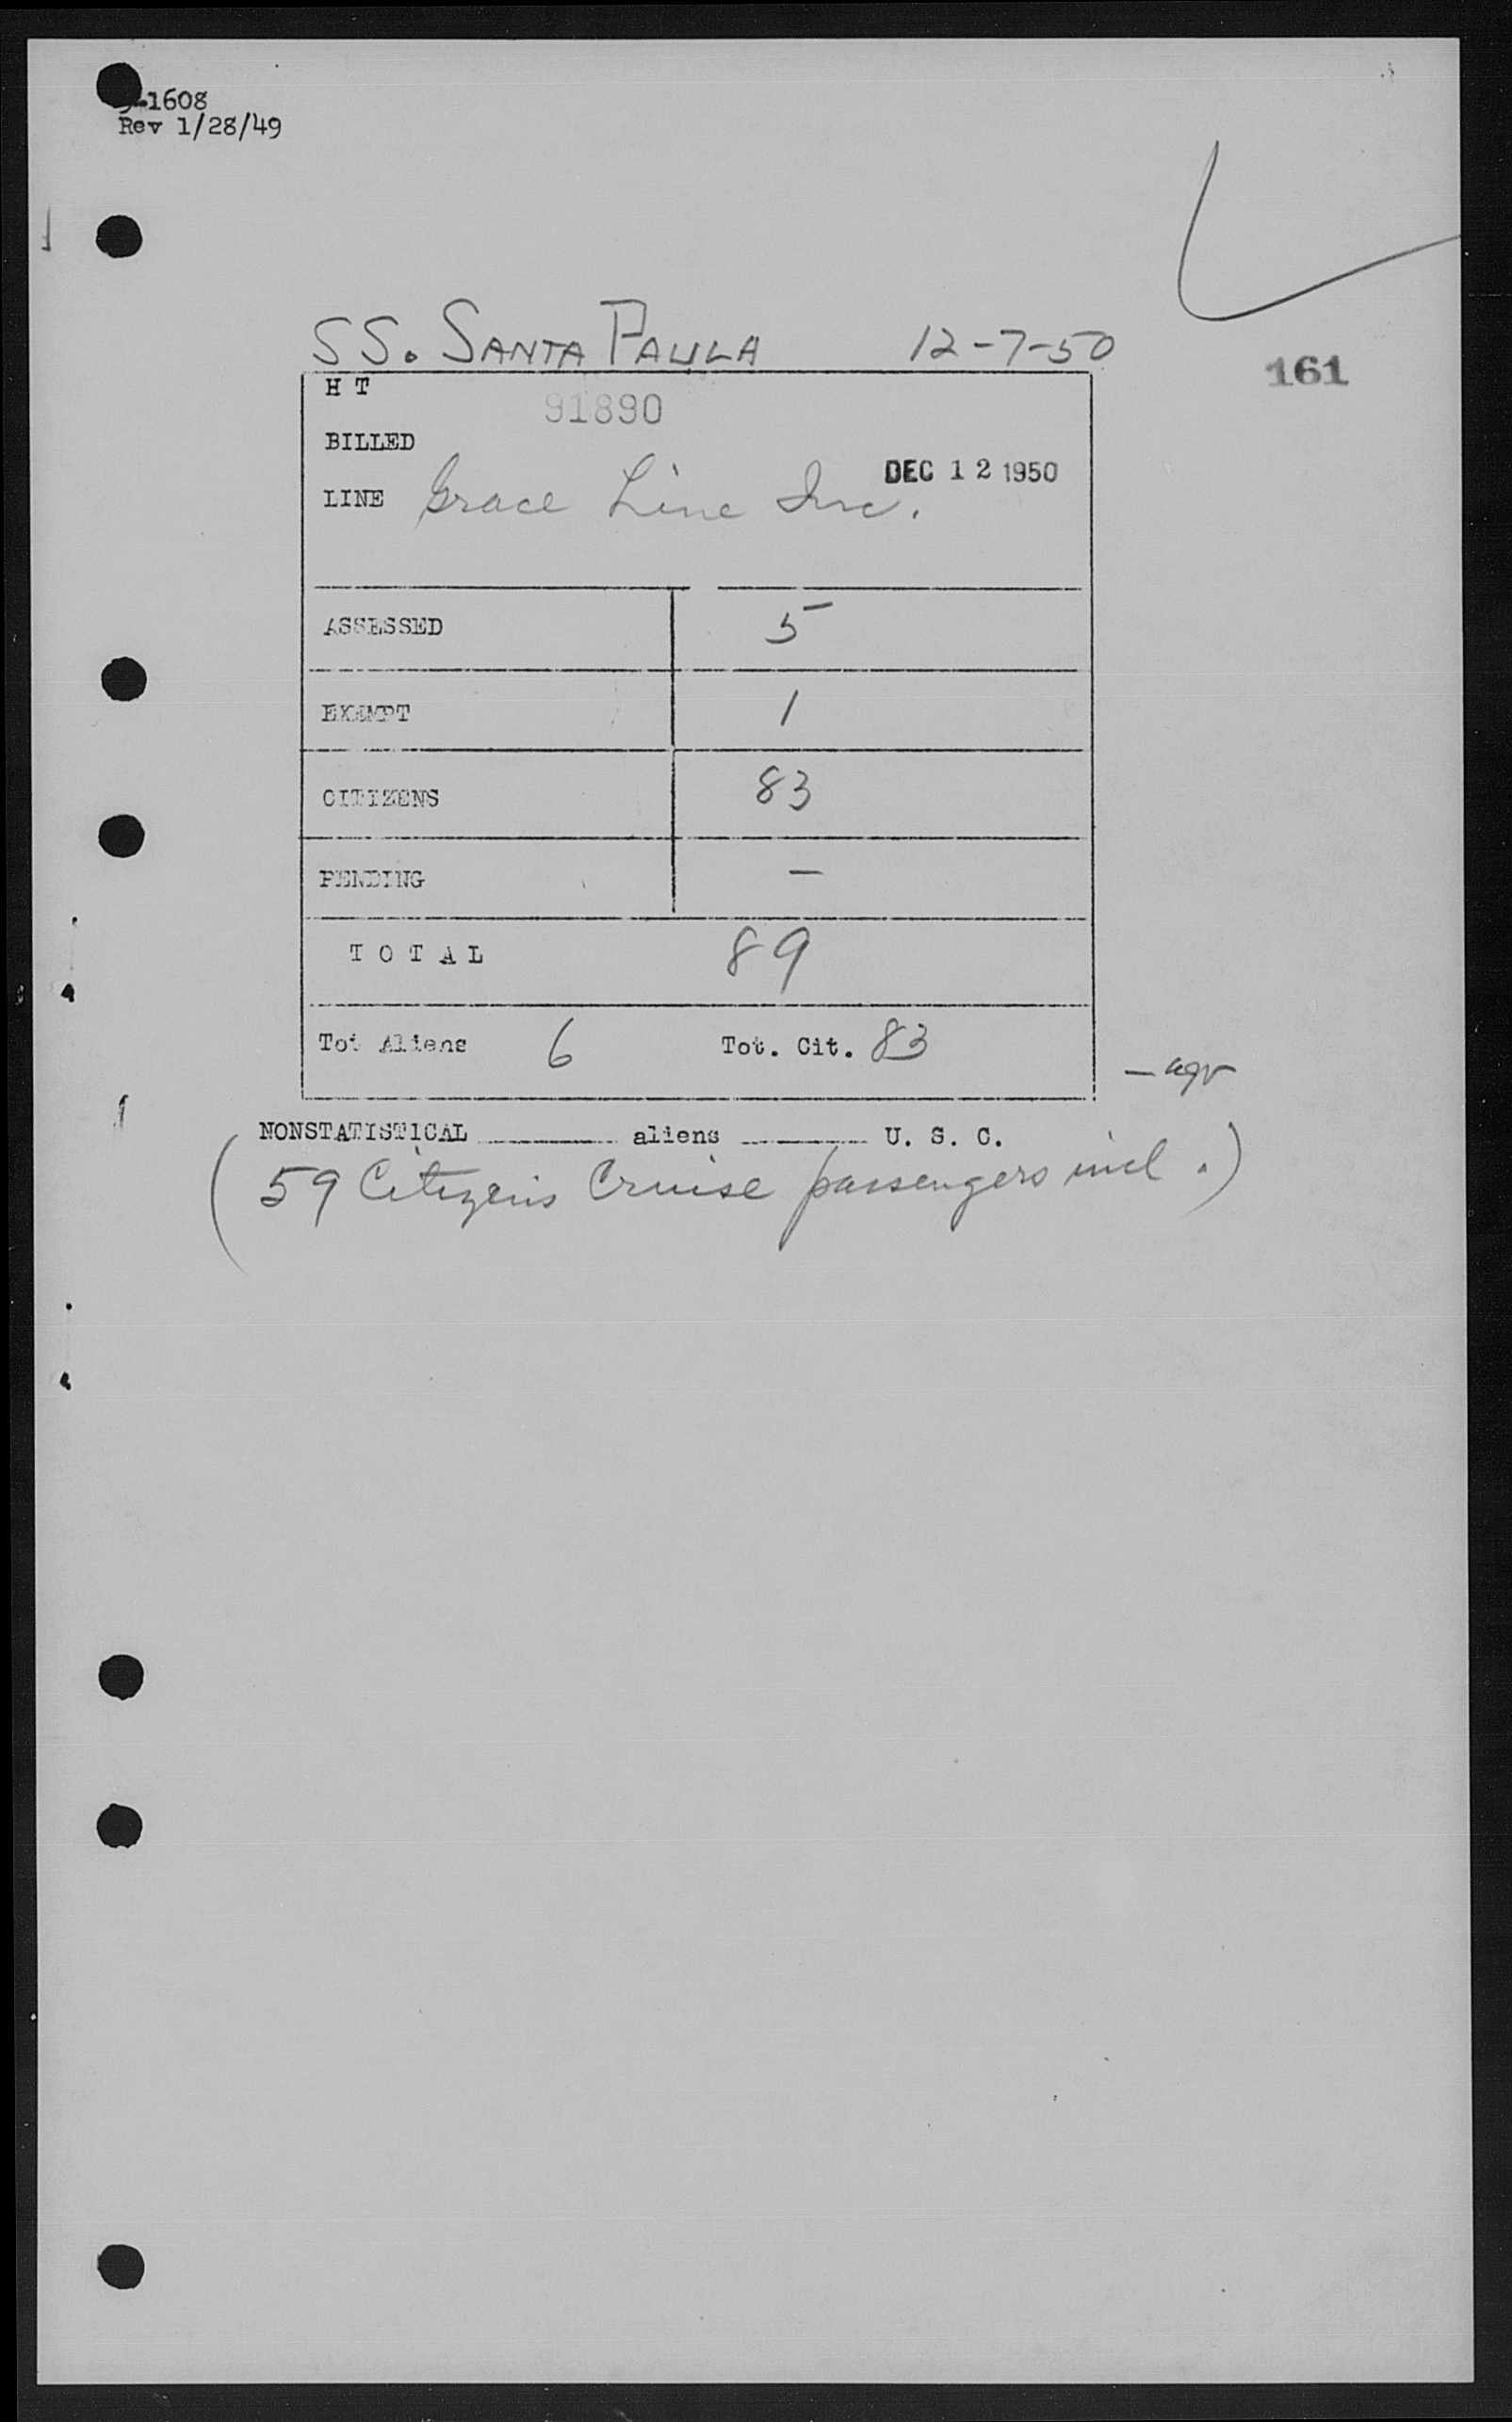 -1608
Rev 1/28/49
SS. SANTA PAULA 12-7-50
161
H T
91890
BILLED
DEC 12 1950
LINE Grace Line Inc.
ASSESSED 5
EXEMPT 1
CITIZENS 83
PENDING —
T O T A L 89
Tot Aliens 6 Tot. Cit. 83
NONSTATISTICAL ______ aliens ______ U. S. C.
(59 Citizens Cruise passengers incl.)